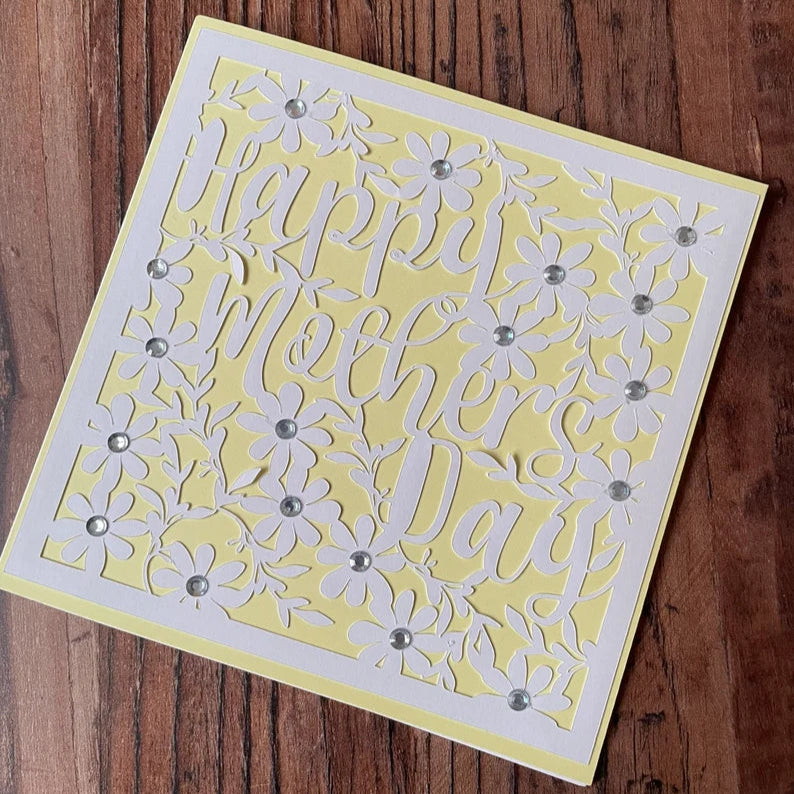 Happy
Mothers
Day